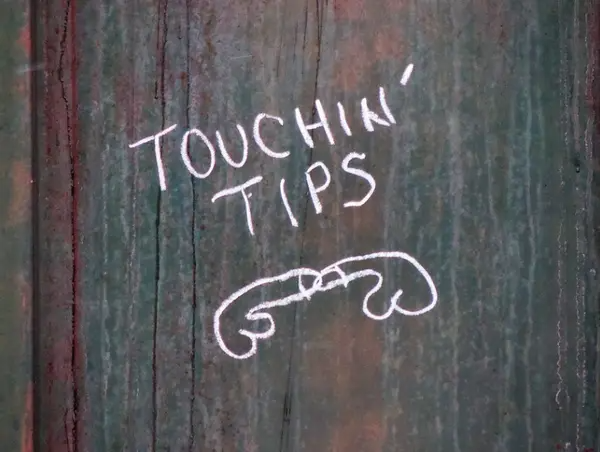 TOUCHIN'
TIPS